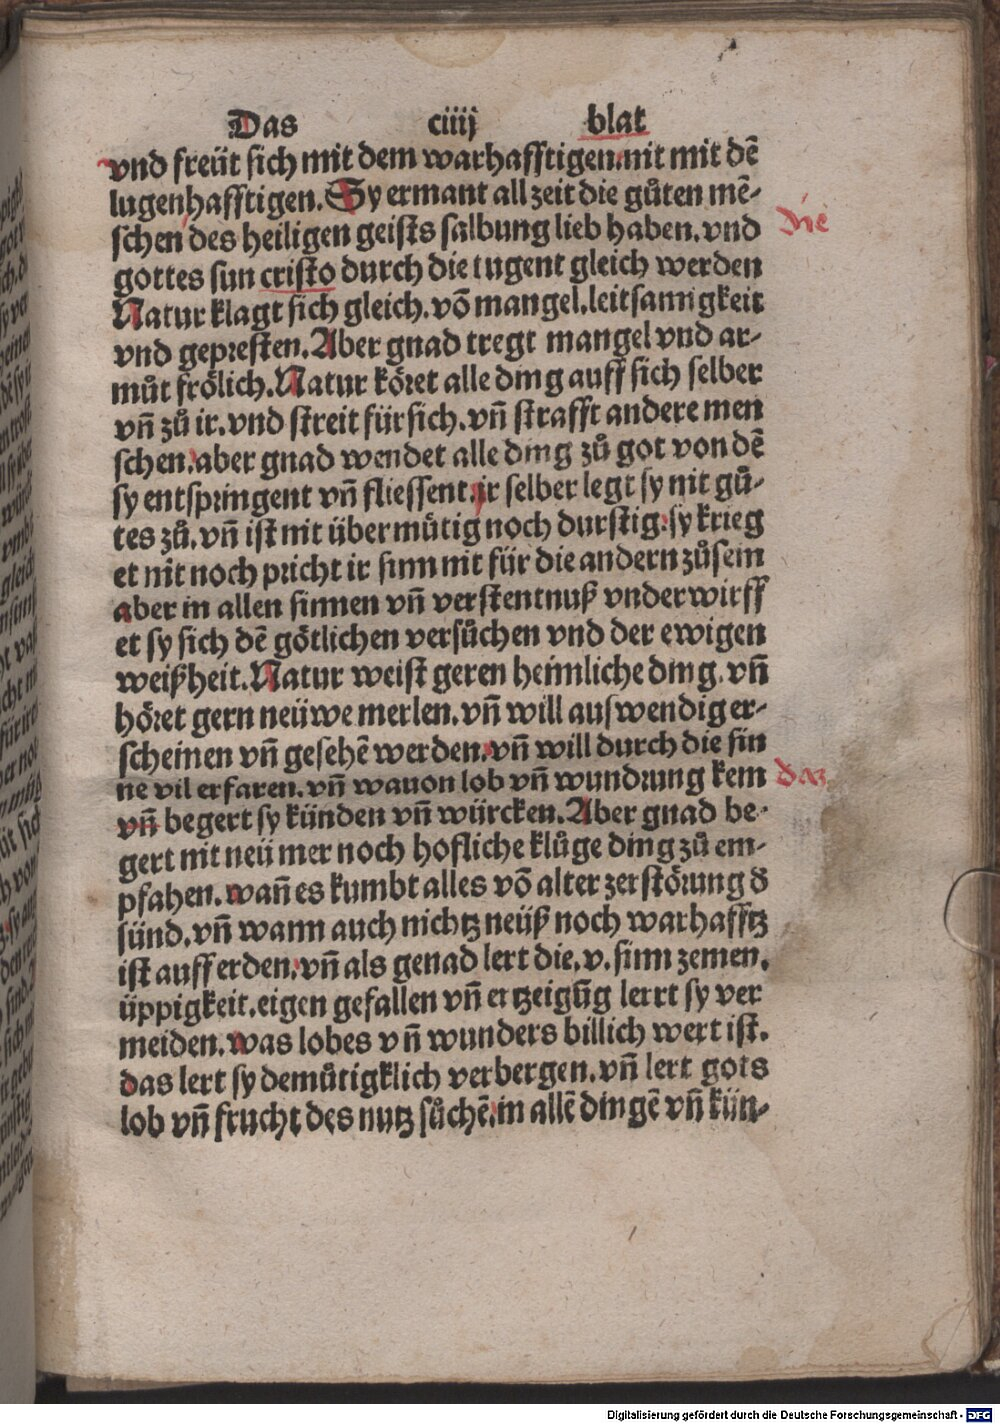 Das ciiij blat
vnd freüt sich mit dem warhafftigen.nit mit dē
lugenhafftigen. Sy ermant all zeit die gůten mē-
schen des heiligen geists salbung lieb haben. vnd die
gottes sun cristo durch die tugent gleich werden
Natur klagt sich gleich. võ mangel. leitsamigkeit
vnd gepresten. Aber gnad tregt mangel vnd ar-
můt frölich. Natur köret alle ding auff sich selber
vñ zů ir. vnd streit für sich. vñ strafft andere men
schen. aber gnad wendet alle ding zů got von dē
sy entspringent vñ fliessent. ir selber legt sy nit gů-
tes zů. vñ ist nit übermütig noch durstig. sy krieg
et nit noch pricht ir sinn nit für die andern zůsein
aber in allen sinnen vñ verstentnuß vnderwirff
et sy sich dē götlichen versůchen vnd der ewigen
weißheit. Natur weist geren heimliche ding. vñ
höret gern neüwe merlen. vñ will auswendig er-
scheinen vñ gesehē werden. vñ will durch die sin
ne vil erfaren. vñ wauon lob vñ wundrung kem daz
vñ begert sy künden vñ würcken. Aber gnad be-
gert nit neü mer noch hofliche klůge ding zů em-
pfahen. wañ es kumbt alles võ alter zerstörung d
sünd. vñ wann auch nichtz neüß noch warhafftz
ist auff erden. vñ als genad lert die. v. sinn zemen.
üppigkeit. eigen gefallen vñ ertzeigūg lerrt sy ver
meiden. was lobes vñ wunders billich wert ist.
das lert sy demůtigklich verbergen. vñ lert gots
lob vñ frucht des nutz sůchē. in allē dingē vñ kün-
Digitalisierung gefördert durch die Deutsche Forschungsgemeinschaft - DFG